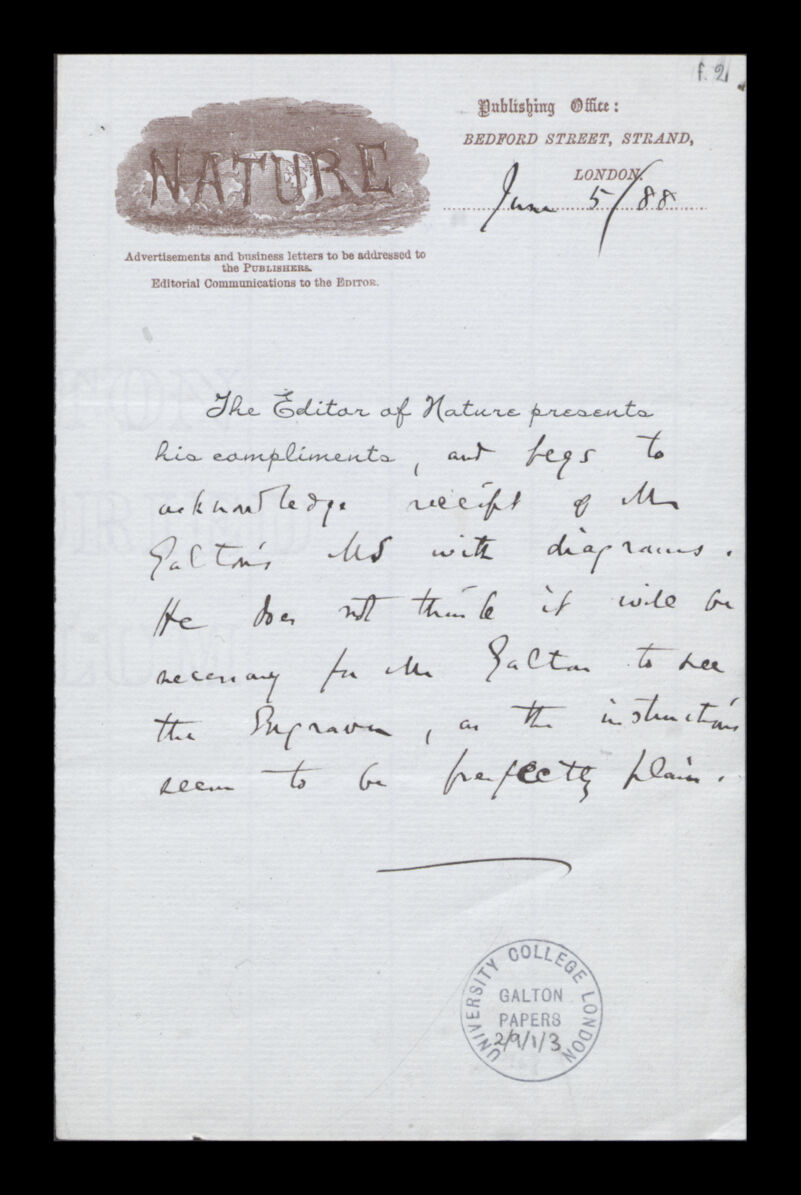 f. 2
NATURE
Publishing Office:
BEDFORD STREET, STRAND,
LONDON.
June 5/88
Advertisements and business letters to be addressed to
the PUBLISHERS.
Editorial Communications to the EDITOR.
The Editor of Nature presents
his compliments, and begs to
acknowledge receipt of Mr
Galton's MS with diagrams.
He does not think it will be
necessary for Mr Galton to see
the Engraver, as the instructions
seem to be perfectly plain.
UNIVERSITY COLLEGE LONDON
GALTON
PAPERS
2/9/1/3